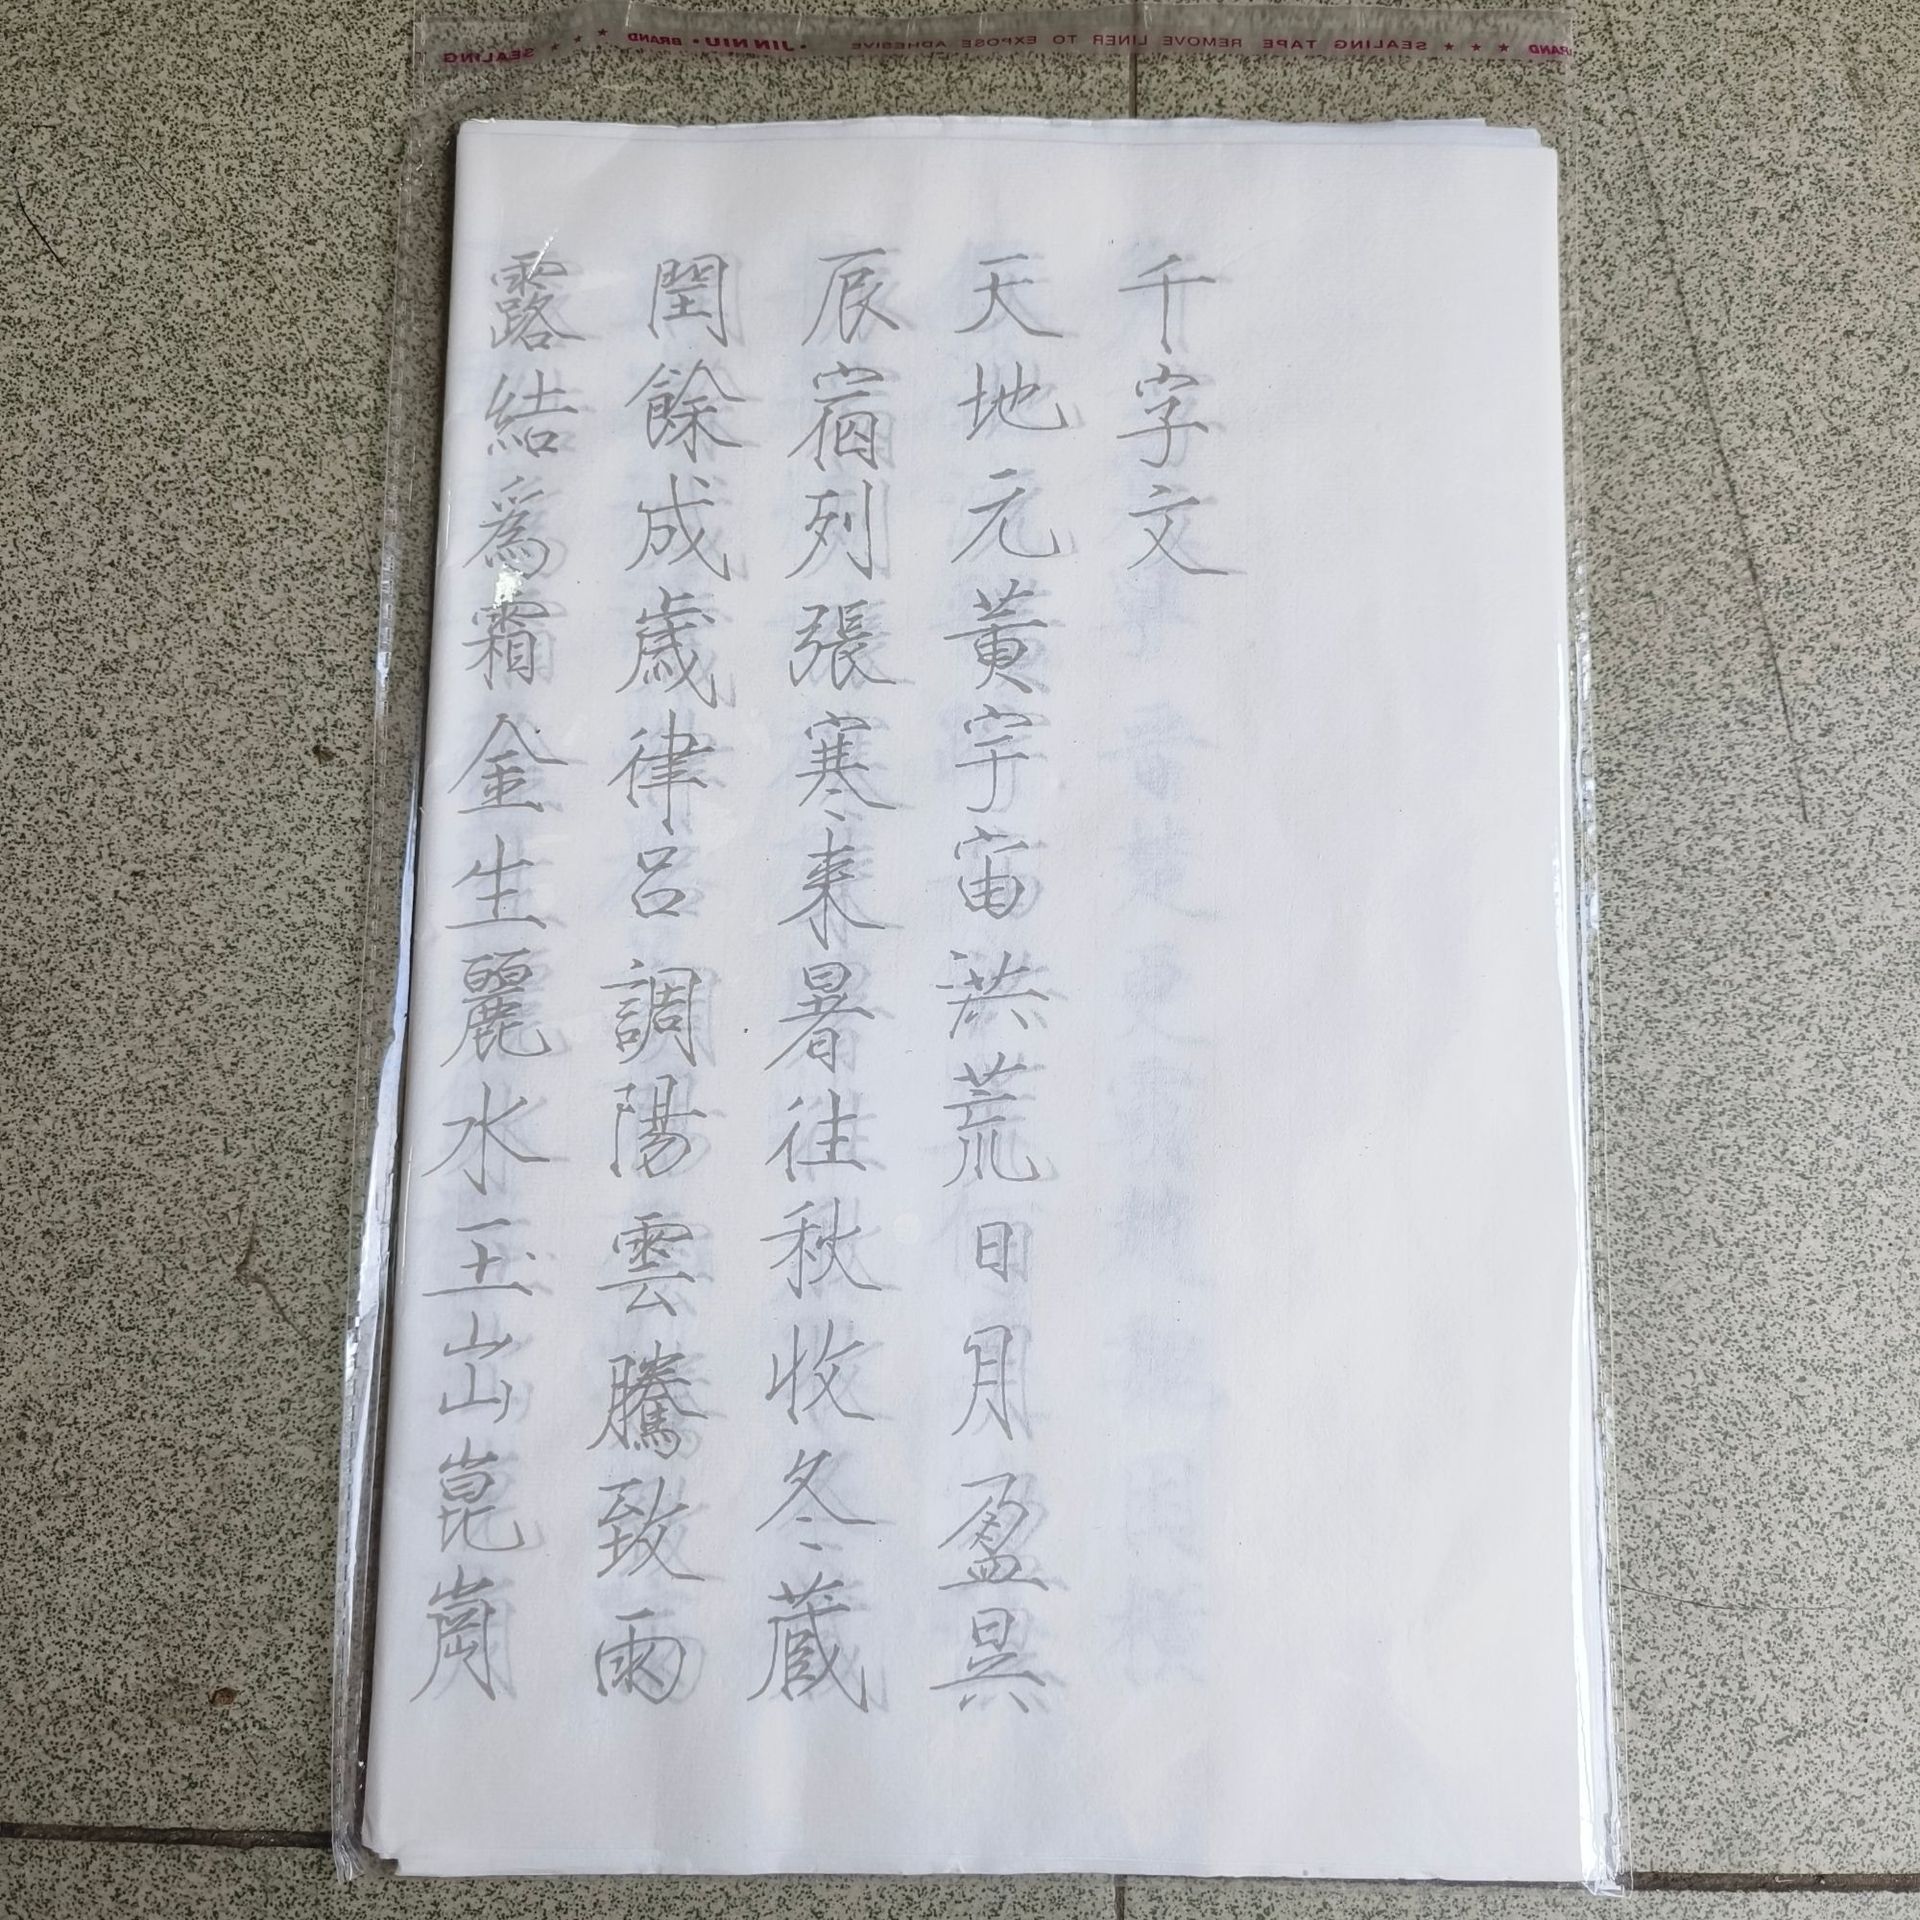 BRAND ★ ★ ★ ★ SEALING TAPE REMOVE LINER TO EXPOSE ADHESIVE • JIN NIU • BRAND ★ ★ ★ SEALING
千字文
天地元黄宇宙洪荒日月盈昃
辰宿列張寒来暑往秋收冬蔵
閏餘成歳律呂調陽雲騰致雨
露結爲霜金生麗水玉出崑崗